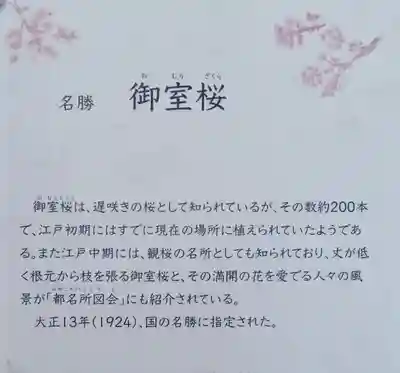 名勝 御室桜
御室桜は、遅咲きの桜として知られているが、その数約200本
で、江戸初期にはすでに現在の場所に植えられていたようであ
る。また江戸中期には、観桜の名所としても知られており、丈が低
く根元から枝を張る御室桜と、その満開の花を愛でる人々の風
景が「都名所図会」にも紹介されている。
大正13年(1924)、国の名勝に指定された。